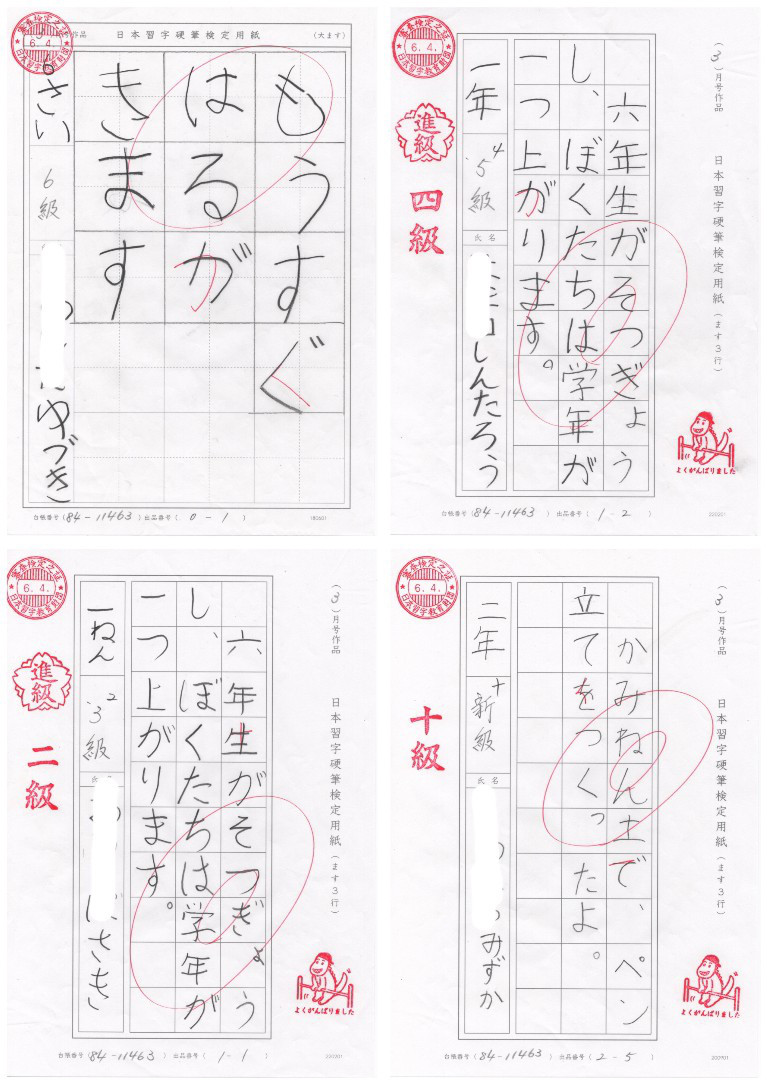 審査検定之証
6.4.
日本習字教育財団
作品
日本習字硬筆検定用紙
(六ます)
もうすぐ
はるが
きます
6さい
6級
ゆづき
台帳番号(84-11463)出品番号(0-1)
180601
審査検定之証
6.4.
日本習字教育財団
進級
四級
(3)月号作品
日本習字硬筆検定用紙(ます3行)
六年生がそつぎょう
し、ぼくたちは学年が
一つ上がります。
一年
4
5級
氏名
しんたろう
よくがんばりました
台帳番号(84-11463)出品番号(1-2)
220201
審査検定之証
6.4.
日本習字教育財団
進級
二級
(3)月号作品
日本習字硬筆検定用紙(ます3行)
六年生がそつぎょう
し、ぼくたちは学年が
一つ上がります。
一ねん
2
3級
さき
よくがんばりました
台帳番号(84-11463)出品番号(1-1)
220201
審査検定之証
6.4.
日本習字教育財団
十級
(3)月号作品
日本習字硬筆検定用紙(ます3行)
かみねん土で、ペン
立てをつくったよ。
二年
十
新級
氏名
みずか
よくがんばりました
台帳番号(84-11463)出品番号(2-5)
220201